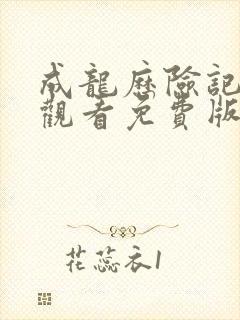 成龍歷險記
觀看免費版
花蕊衣1